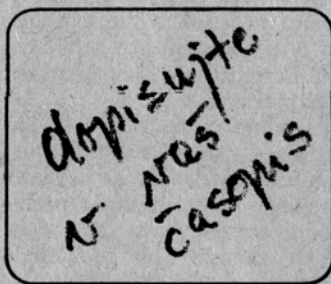 dopisujte
v vaš
časopis